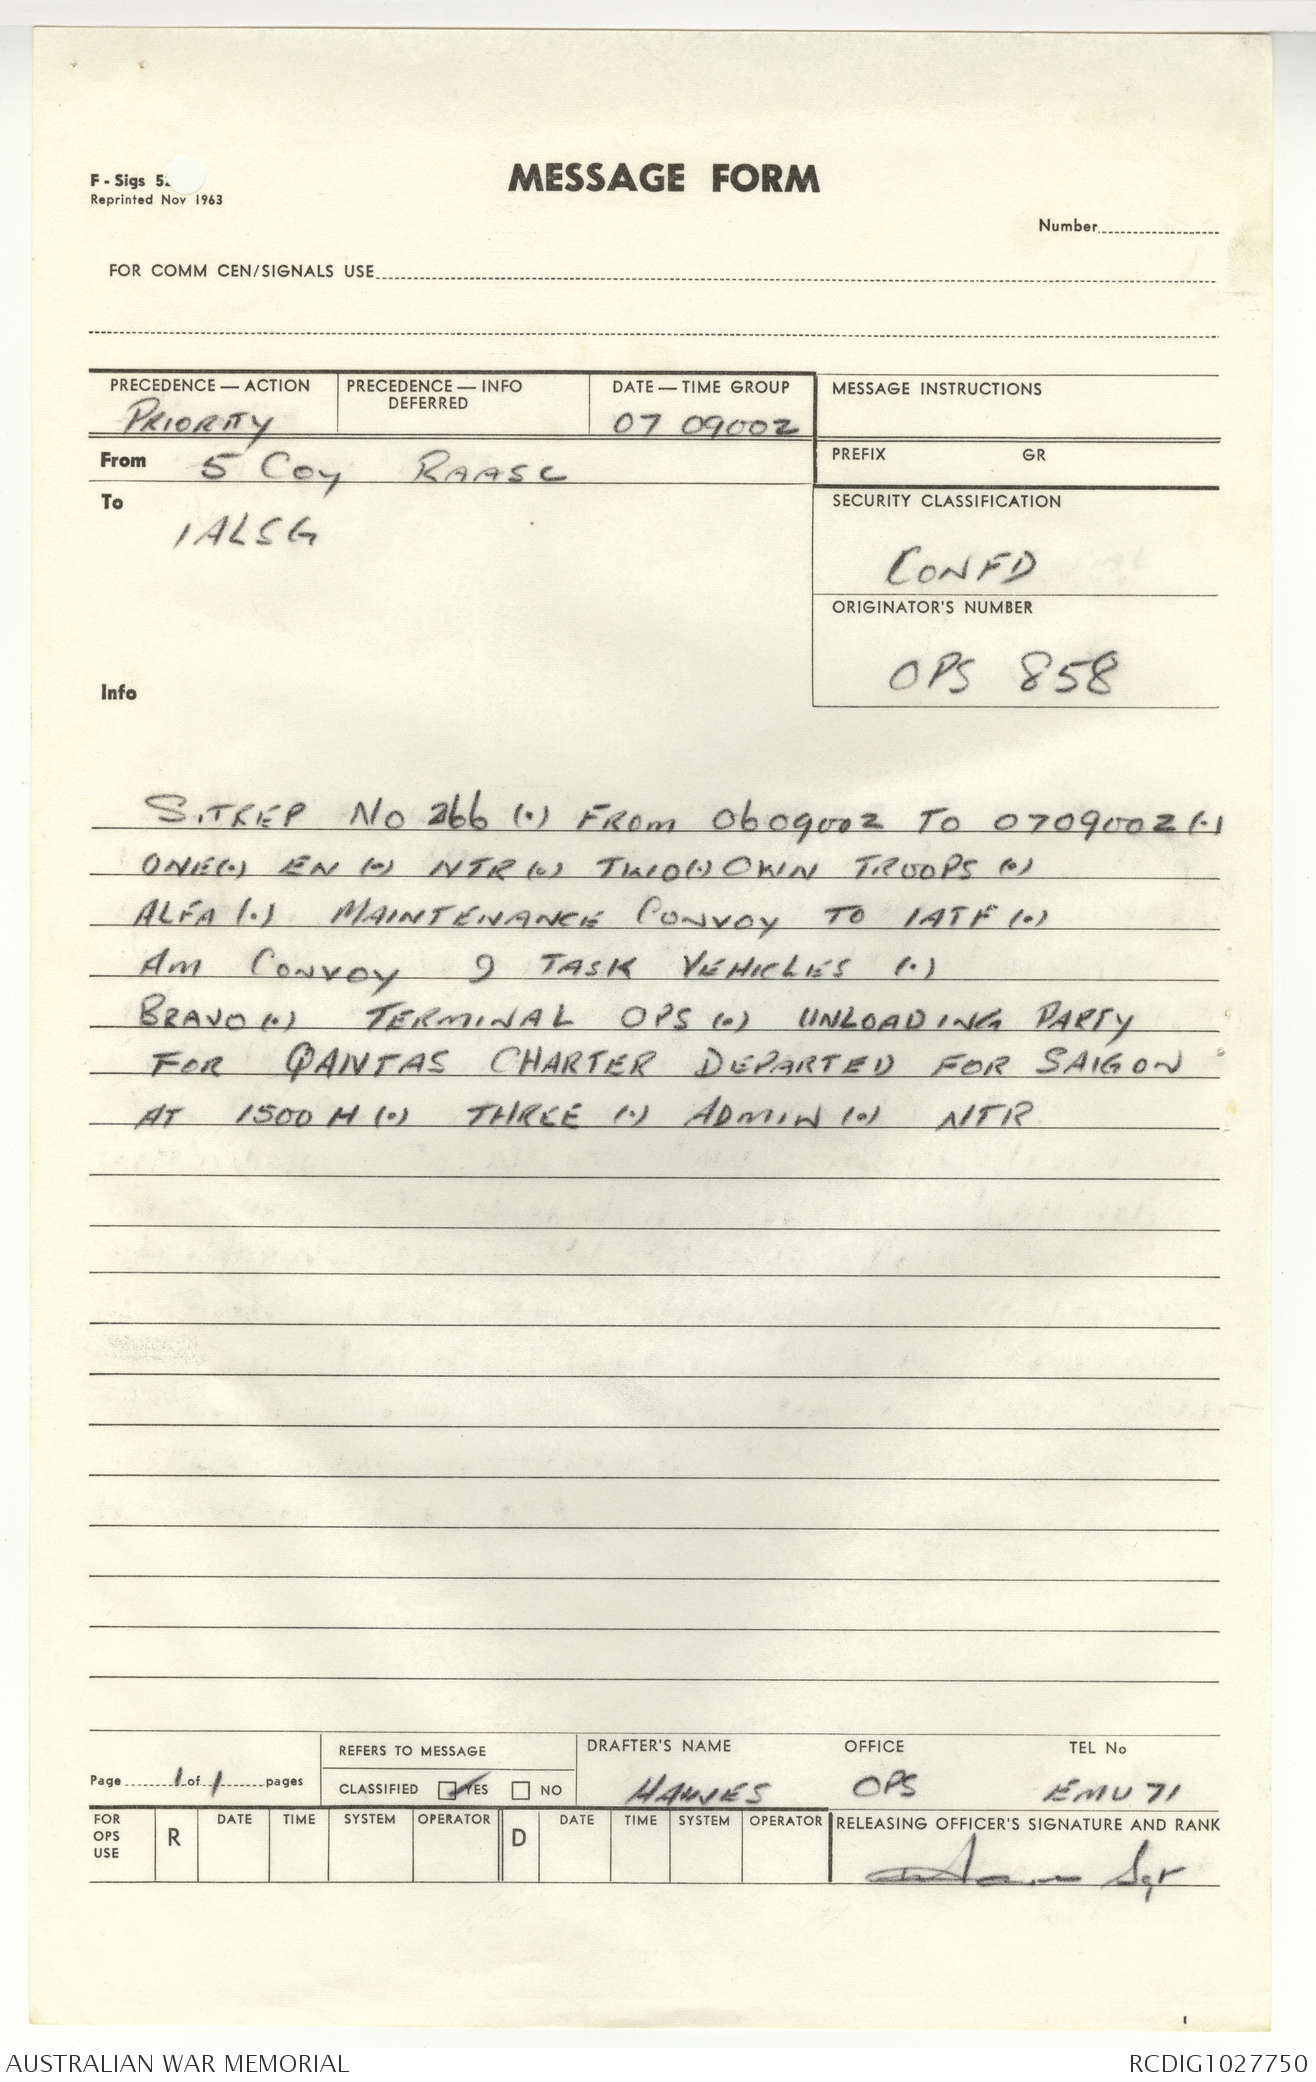 MESSAGE FORM
F - Sigs 5
Reprinted Nov 1963
Number
FOR COMM CEN/SIGNALS USE
PRECEDENCE — ACTION
PRIORITY
PRECEDENCE — INFO
DEFERRED
DATE — TIME GROUP
07 0900Z
MESSAGE INSTRUCTIONS
From 5 Coy RAASC
PREFIX GR
To
1ALSG
SECURITY CLASSIFICATION
CONFD
ORIGINATOR'S NUMBER
OPS 858
Info
SITREP No 266 (.) FROM 060900Z TO 070900Z (.)
ONE(.) EN (.) NTR (.) TWO(.) OWN TROOPS (.)
ALFA (.) MAINTENANCE CONVOY TO 1ATF (.)
AM CONVOY 9 TASK VEHICLES (.)
BRAVO (.) TERMINAL OPS (.) UNLOADING PARTY
FOR QANTAS CHARTER DEPARTED FOR SAIGON
AT 1500 H (.) THREE (.) ADMIN (.) NTR
Page 1 of 1 pages
REFERS TO MESSAGE
CLASSIFIED YES NO
DRAFTER'S NAME OFFICE TEL No
HAWES OPS EMU 71
FOR OPS USE
R DATE TIME SYSTEM OPERATOR
D DATE TIME SYSTEM OPERATOR
RELEASING OFFICER'S SIGNATURE AND RANK
Sgt
AUSTRALIAN WAR MEMORIAL
RCDIG1027750